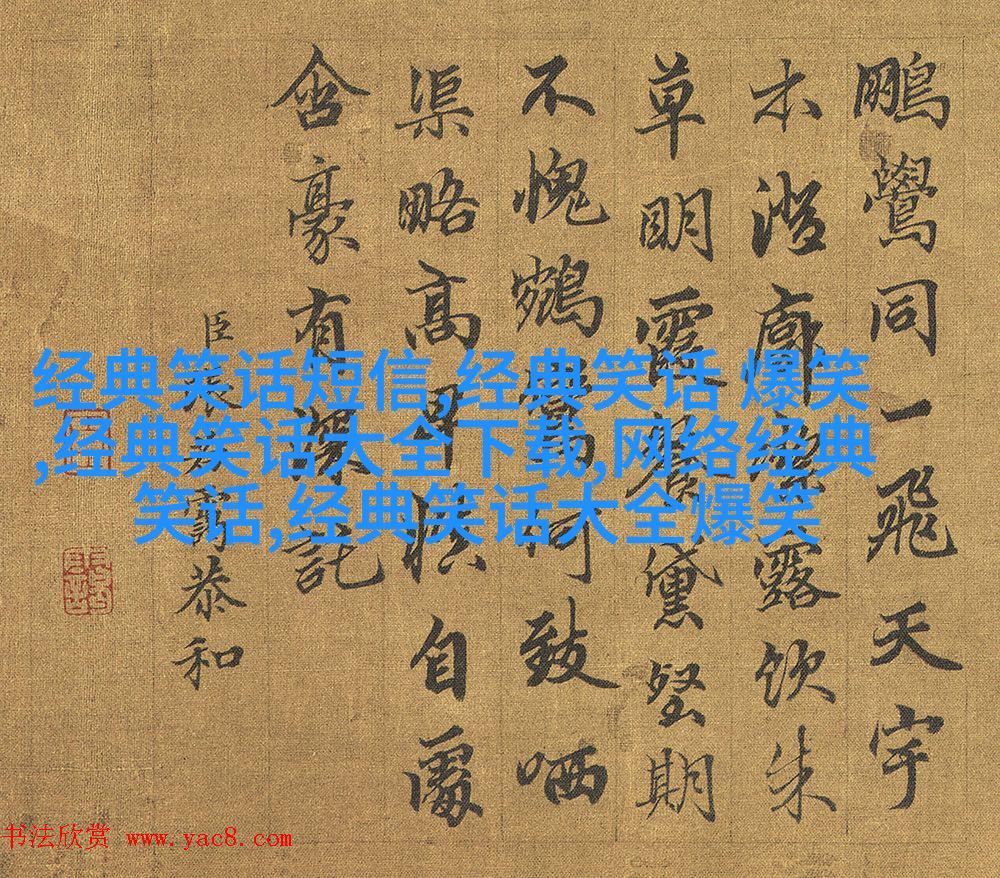 鵬鷽同一飛天宇
木澄廓露飲朱
草明霞黛堅期
不愧鵷何致哂
渠略高甲自
含豪有託
臣恭和
经典笑话短信,经典笑话 爆笑
,经典笑话大全下载,网络经典
笑话,经典笑话大全爆笑
书法欣赏 www.yac8.com